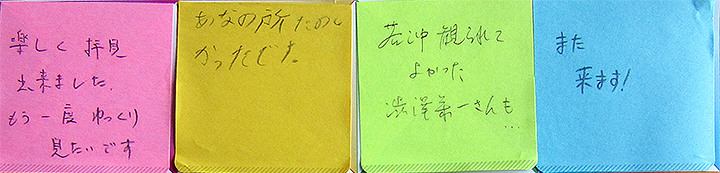 楽しく 拝見
出来ました.
もう一度 ゆっくり
見たいです
あなの所 たのし
かったでた。
若冲 観られて
よかった
渋澤栄一さんも…
また
来ます!